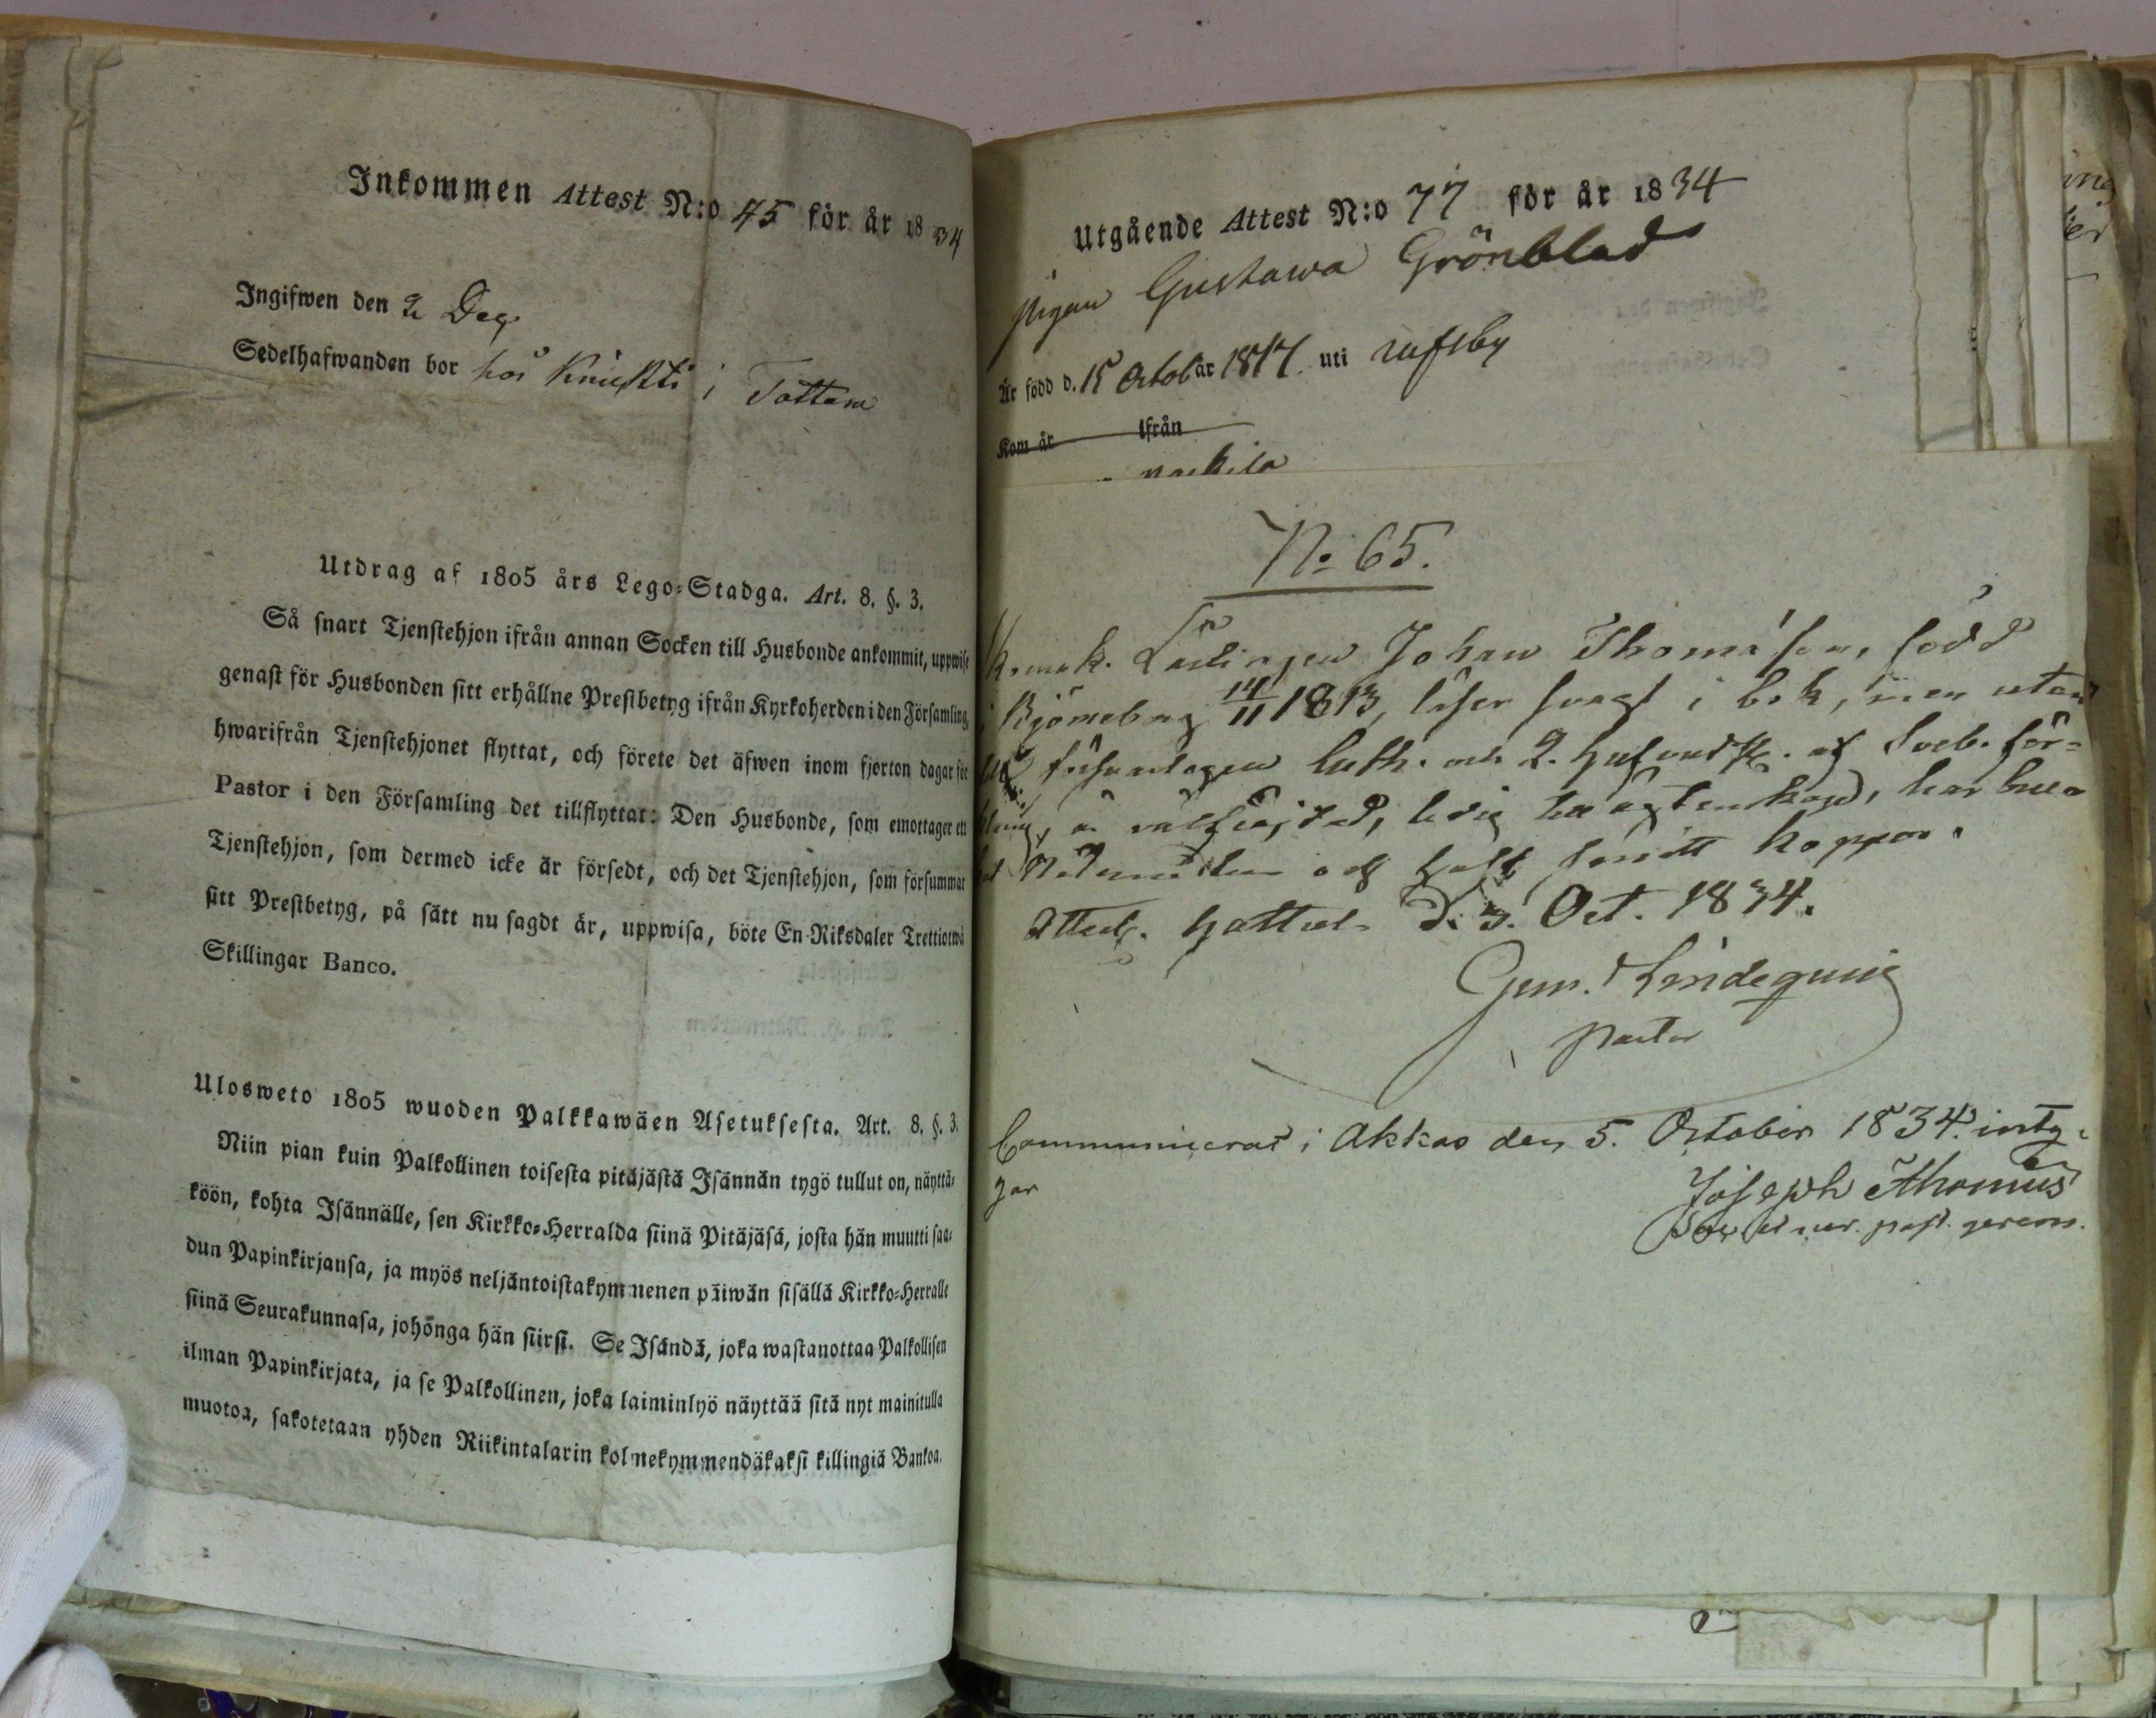 Inkommen Attest N:o 45 för år 1834
Ingifwen den 2 Dec
Sedelhafwanden bor hos Knickti i Tottaru
Utdrag af 1805 års Lego-Stadga. Art. 8. §. 3.
Så snart Tjenstehjon ifrån annan Socken till Husbonde ankommit, uppwise
genast för Husbonden sitt erhållne Prestbetyg ifrån Kyrkoherden i den Församling,
hwarifrån Tjenstehjonet flyttat, och förete det äfwen inom fjorton dagar för
Pastor i den Församling det tillflyttat: Den Husbonde, som emottager ett
Tjenstehjon, som dermed icke är försedt, och det Tjenstehjon, som försummar
sitt Prestbetyg, på sätt nu sagdt är, uppwisa, böte En Riksdaler Trettiotwå
Skillingar Banco.
Ulosweto 1805 wuoden Palkkawäen Asetuksesta. Art. 8. §. 3.
Niin pian kuin Palkollinen toisesta pitäjästä Isännän tygö tullut on, näyttä-
köön, kohta Isännälle, sen Kirkko-Herralda siinä Pitäjäsä, josta hän muutti saa-
dun Papinkirjansa, ja myös neljäntoistakymmenen päiwän sisällä Kirkko-Herralle
siinä Seurakunnasa, johönga hän siirsi. Se Isändä, joka wastanottaa Palkollisen
ilman Papinkirjata, ja se Palkollinen, joka laiminlyö näyttää sitä nyt mainitulla
muotoa, sakotetaan yhden Riikintalarin kolmekymmendäkaksi killingiä Bankoa.
Utgående Attest N:o 77 för år 1834
Pigan Gustawa Grönblad
Är född d. 15 Octob år 1817 uti Rufsby
Kom år ifrån
No 65.
Lärlingen Johan Thomasson, född
i Björneborg 14/11 1813, läser svagt i bok, men utan
Luth. och 2. hufvudst. af Sveb. för-
är välfräjdad, ledig till äktenskap, har
och haft koppor.
Attest. Hattula d. 3. Oct. 1834.
Gem. Lindequist
Pastor
Communicerat i Akkas den 5. October 1834. inty-
gar
Joseph Thomus
past.